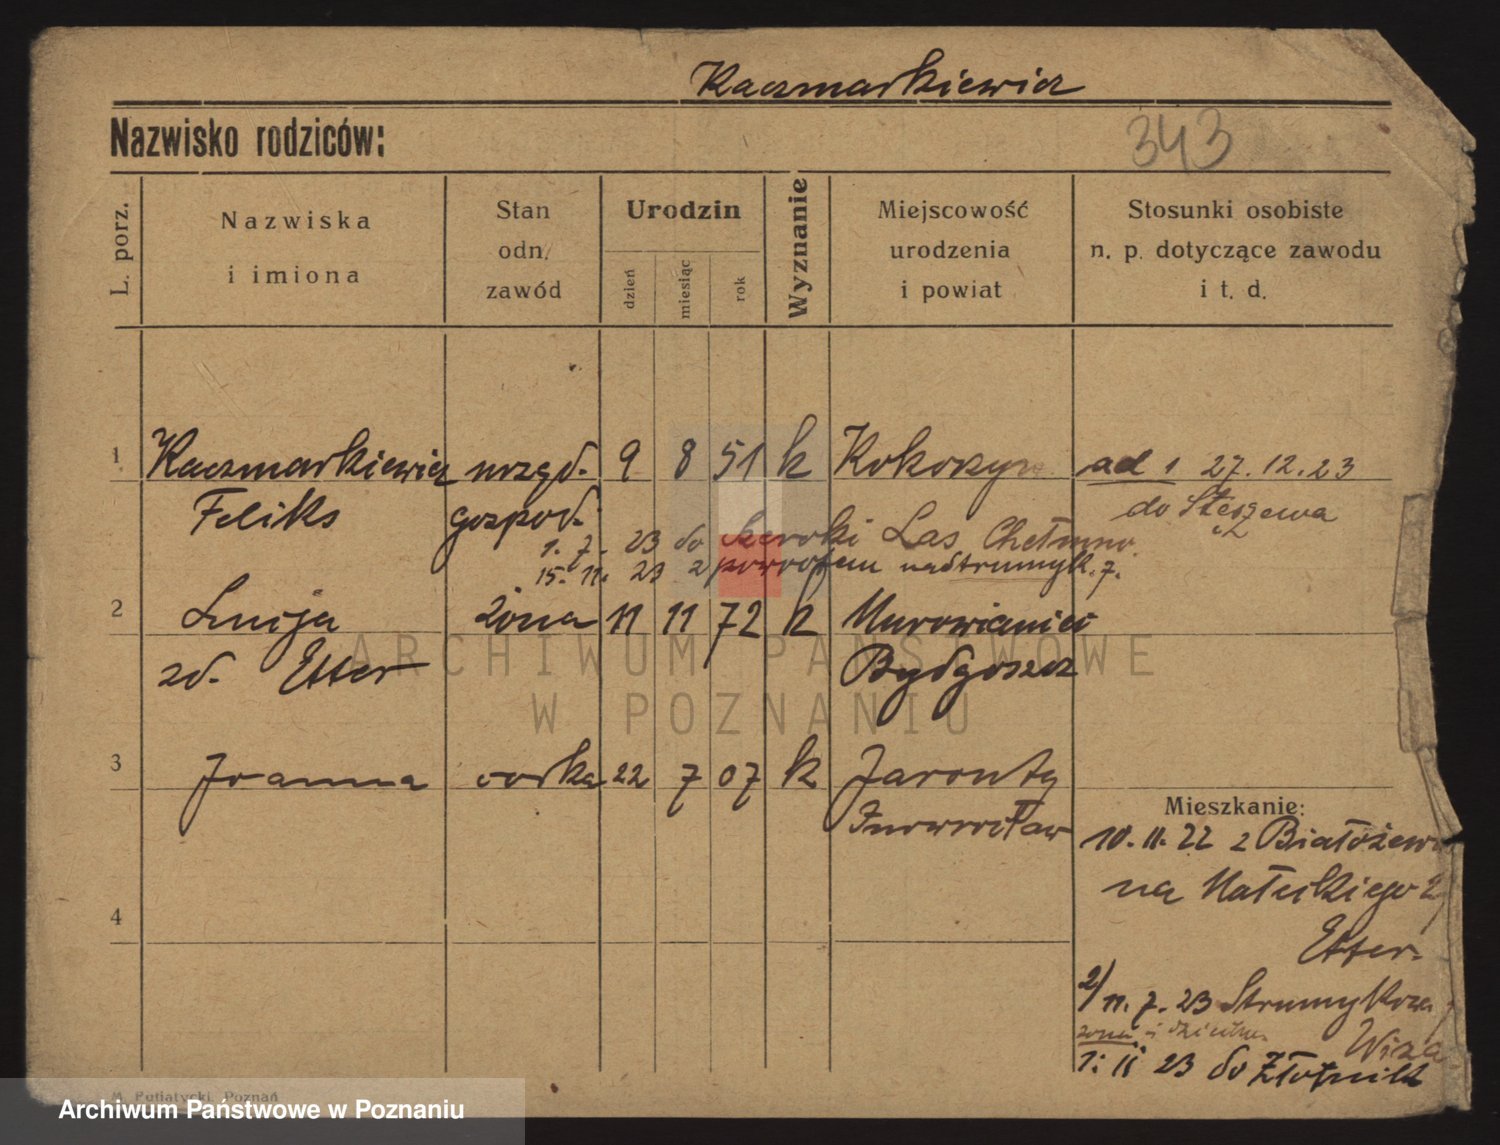 Kaczmarkiewicz
343
Nazwisko rodziców:
L. porz.
Nazwiska i imiona
Stan odn. zawód
Urodzin
dzień
miesiąc
rok
Wyznanie
Miejscowość urodzenia i powiat
Stosunki osobiste n. p. dotyczące zawodu i t. d.
1 Kaczmarkiewicz urzęd. 9 8 51 k ad 1 27.12.23
Feliks gospod. do Stęszewa
1. 7. 23 do Las Chełmno
15. 11. 23 z powrotem na Strumyk. 7.
2 Lucja żona 11 11 72 k Murowaniec
zd. Etter Bydgoszcz
3 Joanna córka 22 7 07 k Jaronty
Inowrocław
4
Mieszkanie:
10. 11. 22 z
na Małeckiego
Etter.
2/ 11. 7. 23
żona i
23 do Złotnik
M. Putiatycki, Poznań
ARCHIWUM PAŃSTWOWE
W POZNANIU
Archiwum Państwowe w Poznaniu